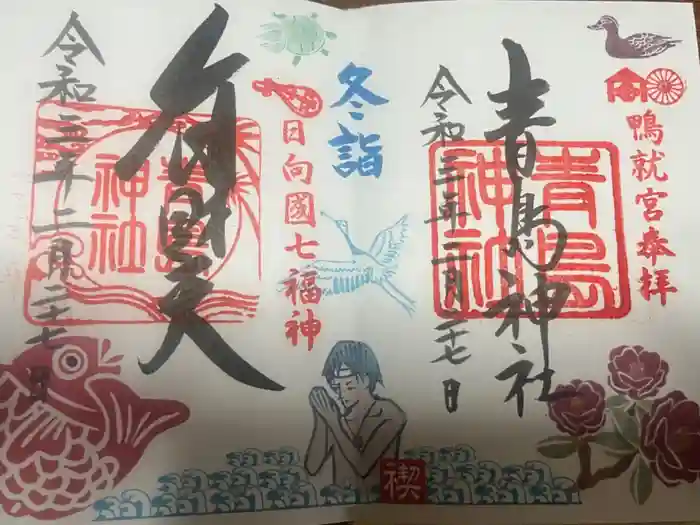 鴨就宮奉拝
青島神社
青島神社
令和三年二月二七日
冬詣
日向國七福神
弁財天
青島神社
令和三年二月二七日
禊